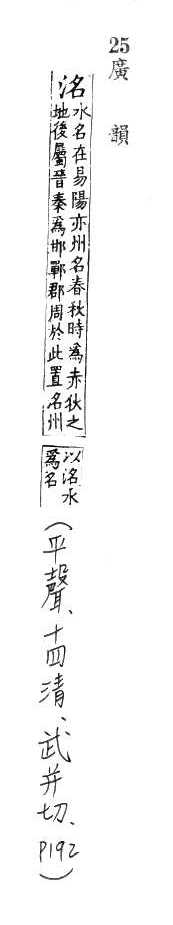 25廣韻
洺水名在易陽亦州名春秋時為赤狄之
地後屬晉秦為邯鄲郡周於此置名州
以洺水
為名
（平聲、十四清、武并切、P192）